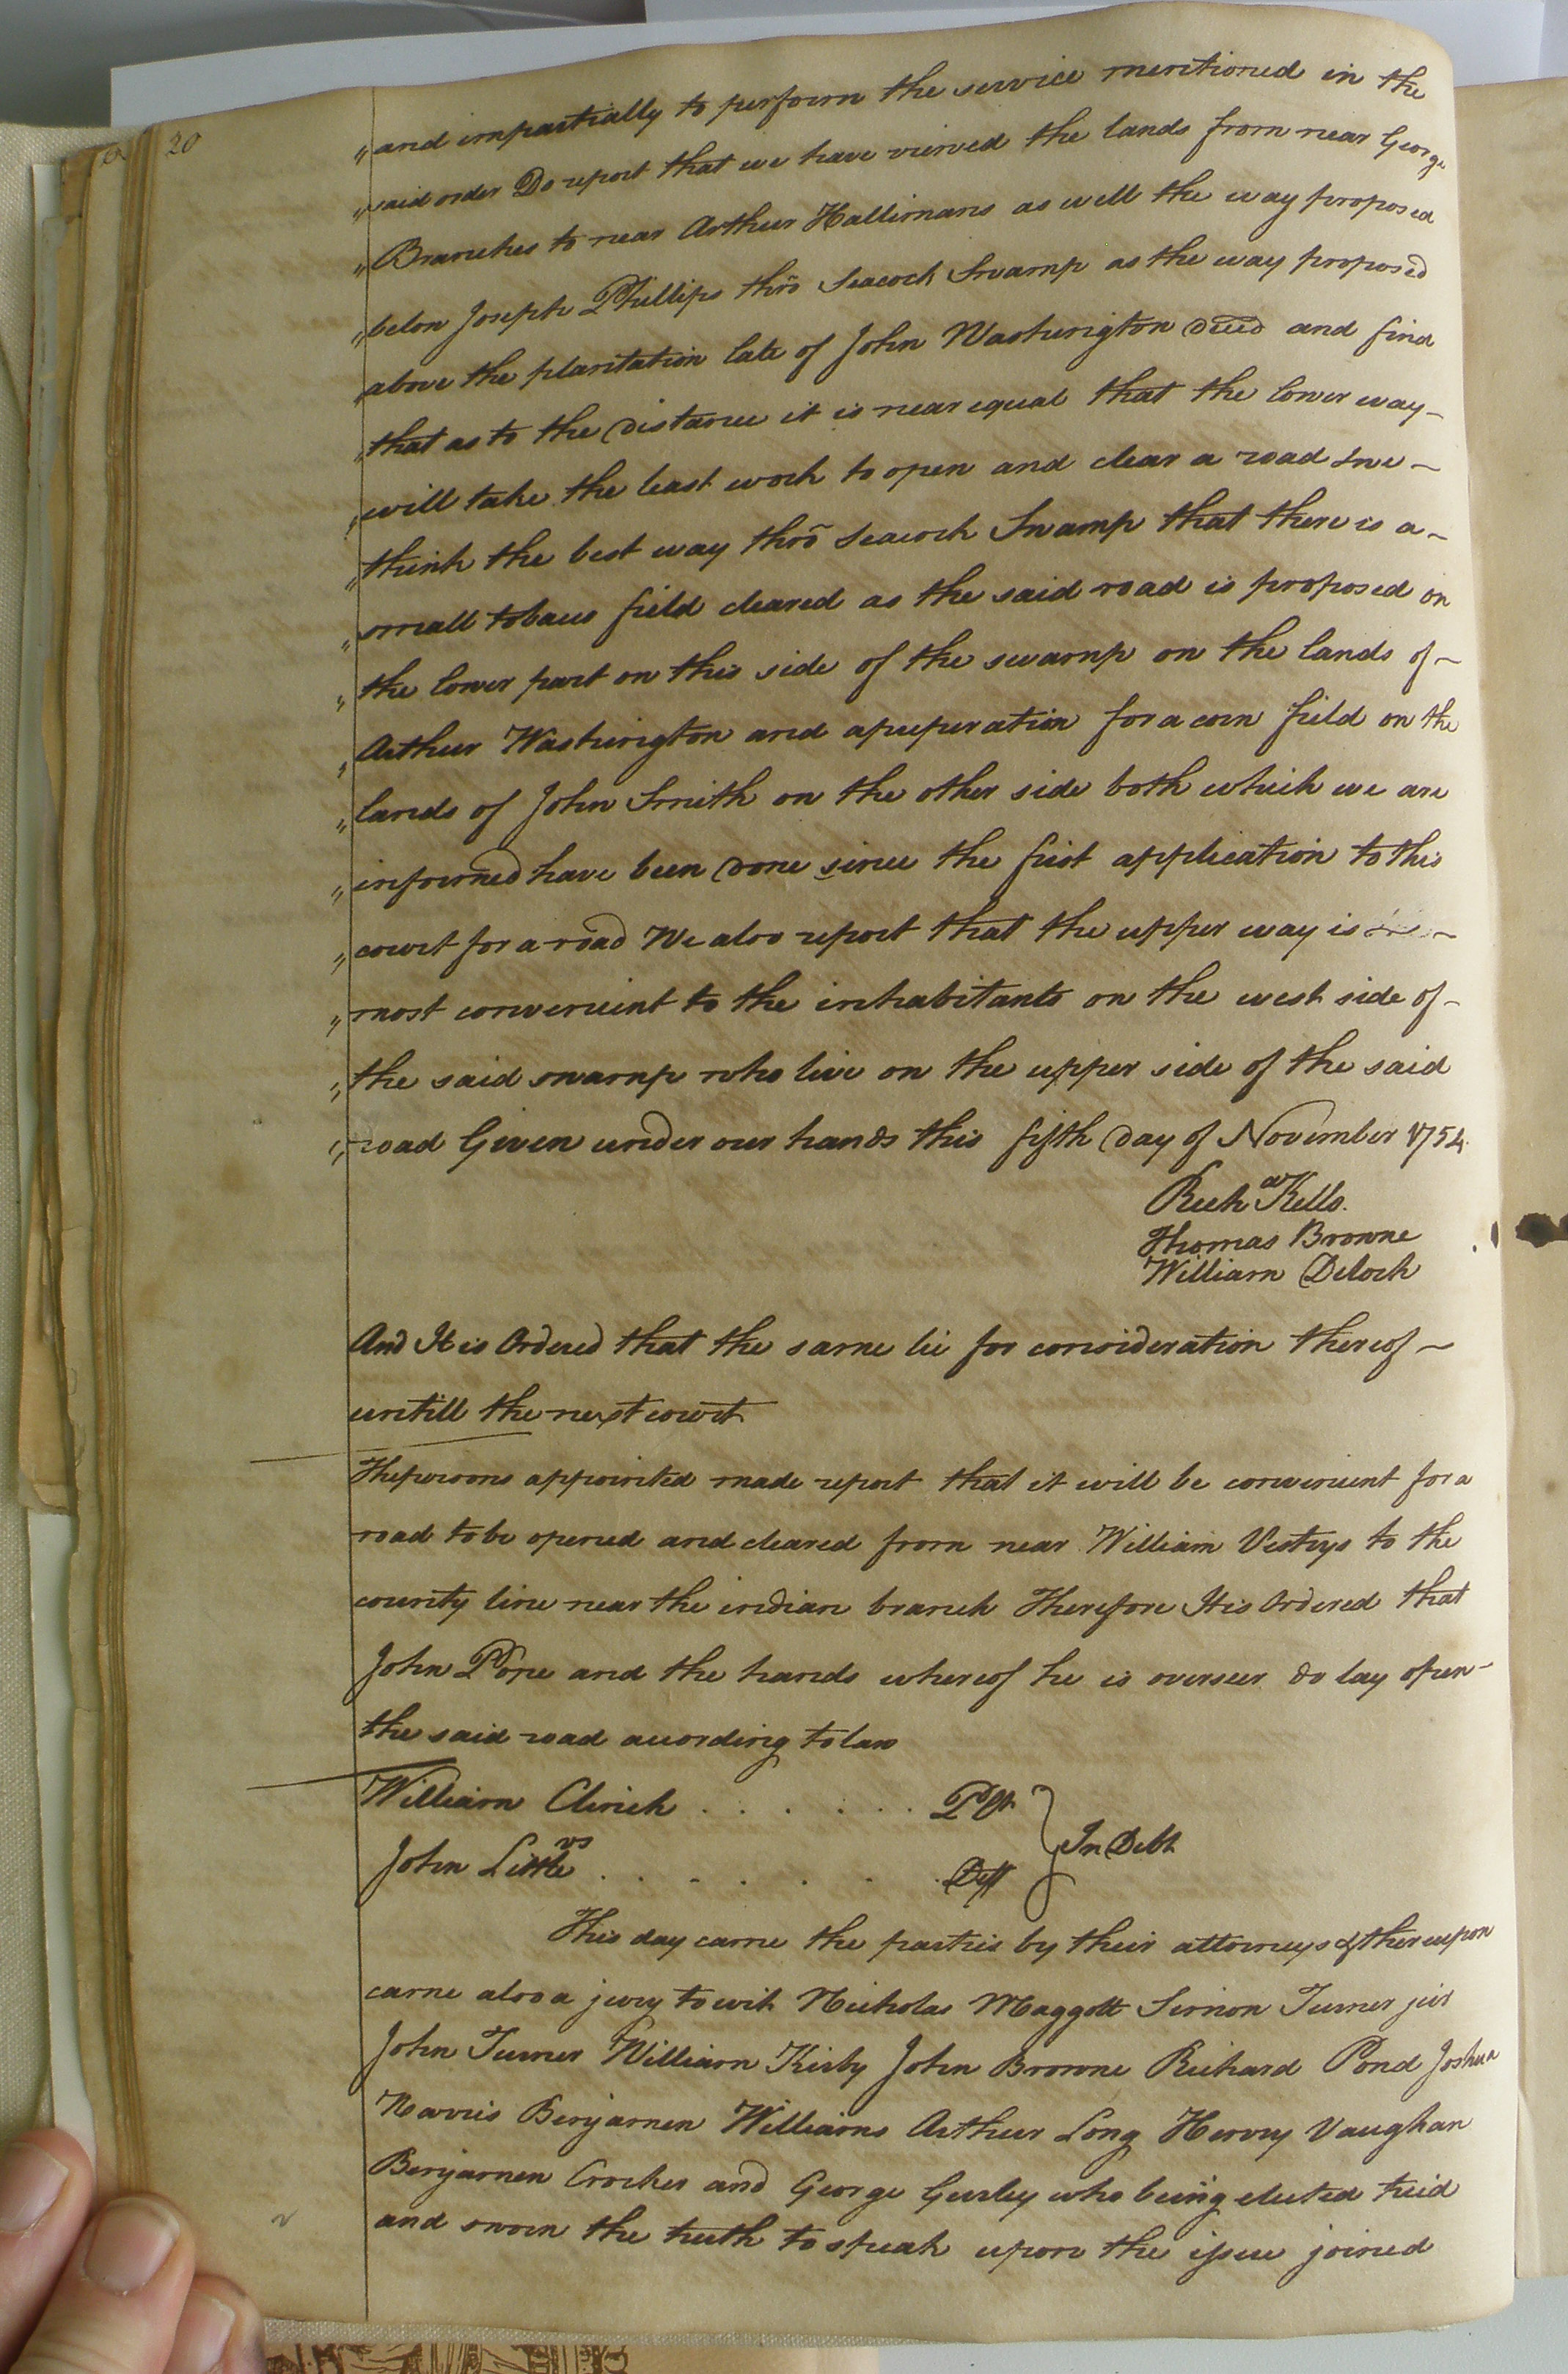 20
"and impartially to perform the service mentioned in the
"said order Do report that we have viewed the lands from near George
"Branches to near Arthur Hallimans as well the way proposed
"below Joseph Phillips thrõ Seacock Swamp as the way proposed
"above the plantation late of John Washington decd and find
"that as to the distance it is near equal that the lower way-
"will take the least work to open and clear a road & we-
"think the best way thrõ Seacock Swamp that there is a-
"small tobaco field cleared as the said road is proposed on
"the lower part on this side of the swamp on the lands of-
"Arthur Washington and a preperation for a corn field on the
"lands of John Smith on the other side both which we are
"informed have been done since the first application to this
"court for a road We also report that the upper way is
"most convenient to the inhabitants on the west side of-
"the said swamp who live on the upper side of the said
"road Given under our hands this fifth Day of November 1754
Richd Kello.
Thomas Browne
William Deloch
And It is Ordered that the same lie for consideration thereof-
untill the next court
The persons appointed made report that it will be convenient for a
road to be opened and cleared from near William Vestrys to the
county line near the indian branch Therefore It is Ordered that
John Pope and the hands whereof he is overseer do lay open-
the said road according to law
William Clinch . . . . . . Plt } In Debt
vs
John Little . . . . . . Deft
This day came the parties by their attorneys & thereupon
came also a jury to wit Nicholas Maggott Simon Turner jur
John Turner William Kirby John Browne Richard Pond Joshua
Norris Benjamen Williams Arthur Long Henry Vaughan
Benjamen Crocker and George Gurley who being elected tried
and sworn the truth to speak upon the issue joined